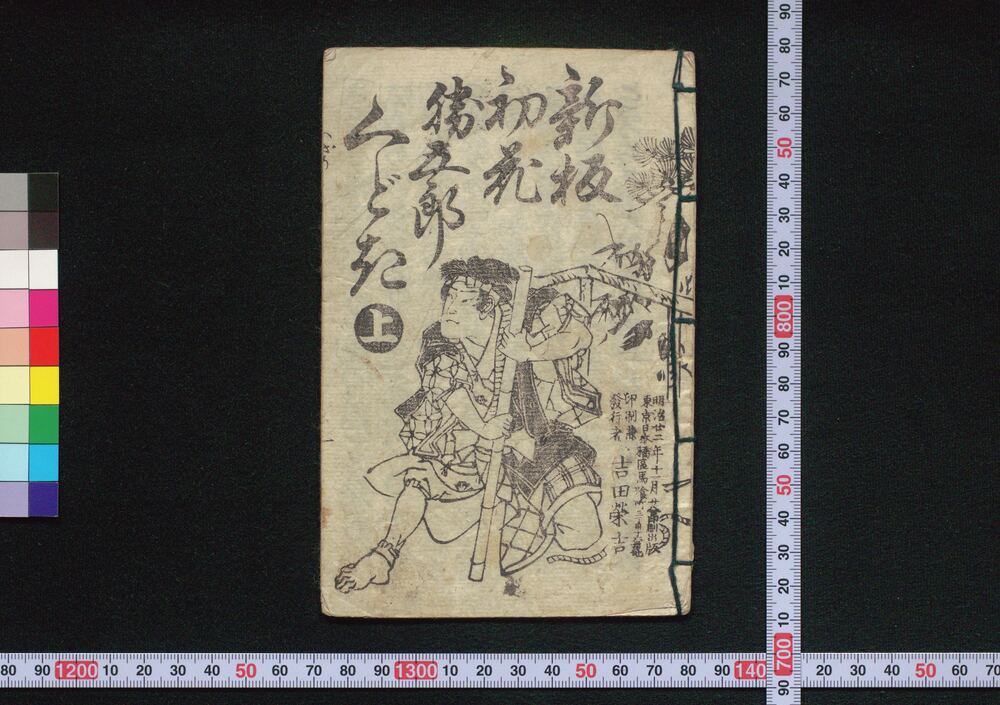 新板
初花
勝五郎
くどき
上
明治廿二年十月廿
東京日本橋區馬喰町
印刷兼
發行者
吉田榮吉
90
80
70
60
50
40
30
20
10
800
90
80
70
60
50
40
30
20
10
700
90
80 90 1200 10 20 30 40 50 60 70 80 90 1300 10 20 30 40 50 60 70 80 90 140 20 30 40 50 60 70